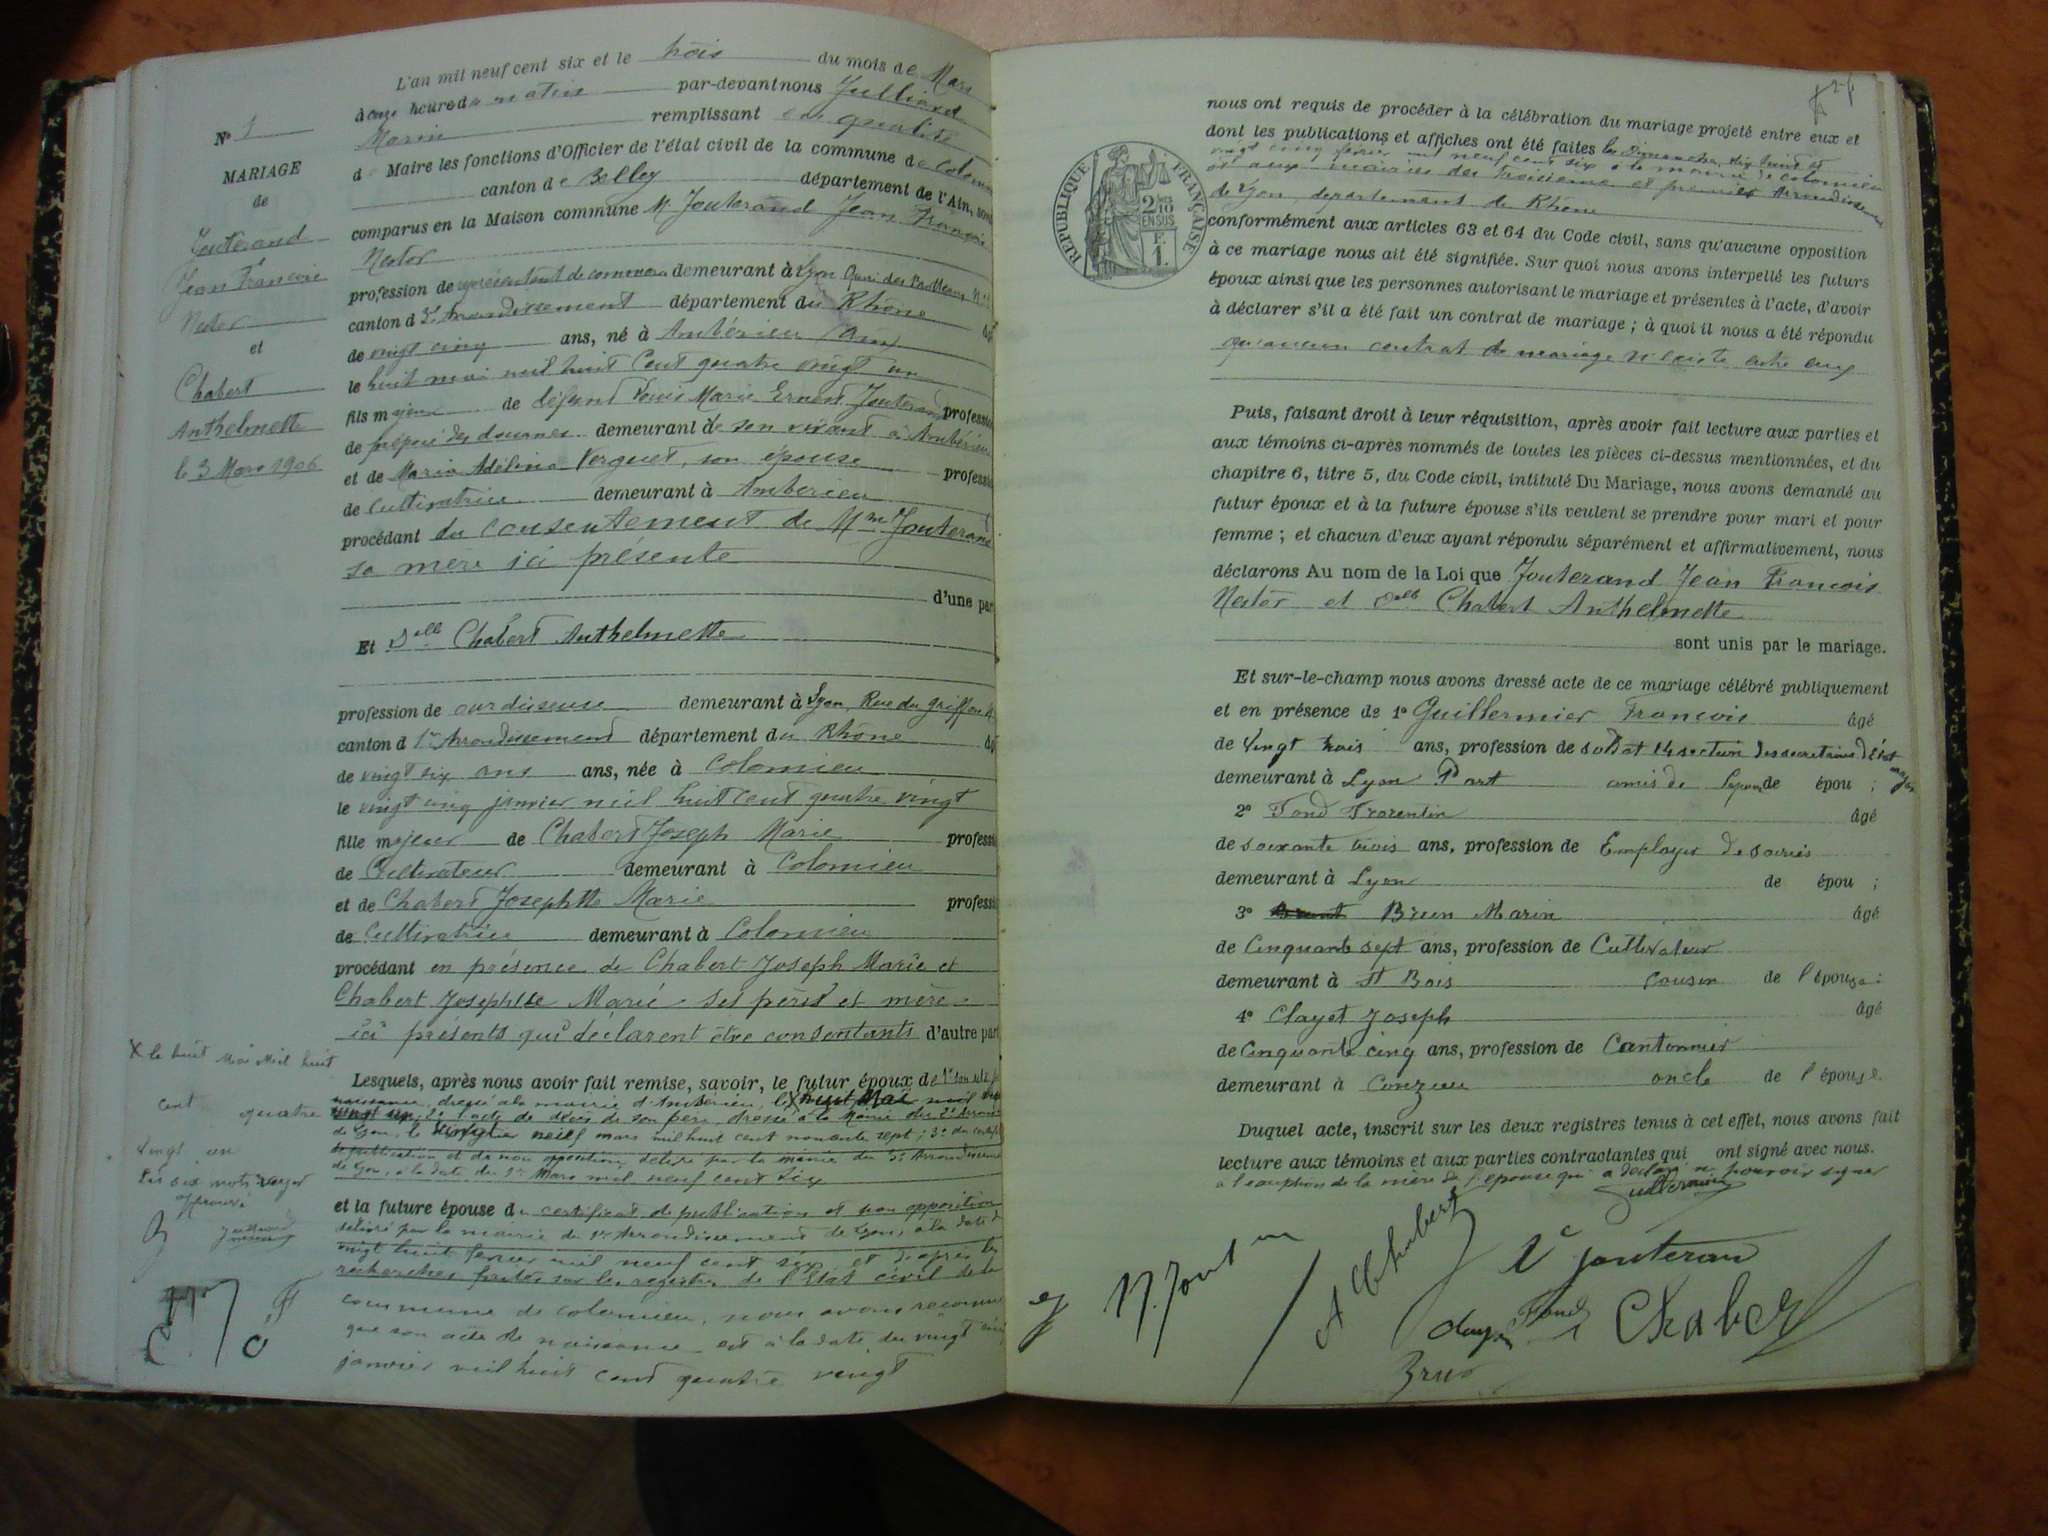 L'an mil neuf cent six et le trois du mois de Mars
à onze heure du matin par-devant nous Julliand
Marin remplissant en qualité
de Maire les fonctions d'Officier de l'état civil de la commune de Colomieu
canton de Belley département de l'Ain, sont
comparus en la Maison commune M. Jouterand Jean François
Nestor
profession de représentant de commerce demeurant à Lyon Quai des
canton d 2e Arrondissement département du Rhône
de vingt cinq ans, né à Ambérieu Ain
le huit mai mil huit cent quatre vingt un
fils majeur de défunt Louis Marie Ernest Jouterand profession
de préposé des douanes demeurant de son vivant à Ambérieu
et de Maria Adéline Verguet, son épouse profession
de cultivatrice demeurant à Ambérieu
procédant du consentement de Mme Jouterand
sa mère ici présente
d'une part
Et Delle Chabert Anthelmette
profession de ourdisseuse demeurant à Lyon, Rue du Griffon
canton d 1er Arrondissement département du Rhône
de vingt six ans ans, née à Colomieu
le vingt cinq janvier mil huit cent quatre vingt
fille majeur de Chabert Joseph Marie profession
de Cultivateur demeurant à Colomieu
et de Chabert Josephtte Marie profession
de Cultivatrice demeurant à Colomieu
procédant en présence de Chabert Joseph Marie et
Chabert Josephtte Marie ses père et mère
ici présents qui déclarent être consentants d'autre part
Lesquels, après nous avoir fait remise, savoir, le futur époux de 1° son acte de
naissance dressé à la mairie d'Ambérieu, le X huit Mai mil huit
vingt un, 2° l'acte de décès de son père, dressé à la Mairie du 2e Arron
de Lyon, le neuf mars mil huit cent nonante sept; 3° du certificat
de publication et de non opposition délivré par la mairie du 3e Arrondissement
de Lyon, à la date du 1er Mars mil neuf cent six
et la future épouse du certificat de publication et non opposition
délivré par la mairie du 1er Arrondissement de Lyon, à la date du
vingt huit février mil neuf cent six et d'après les
recherches faites sur les registres de l'Etat civil de la
commune de Colomieu, nous avons reconnu
que son acte de naissance est à la date du vingt cinq
janvier mil huit cent quatre vingt
N° 1
MARIAGE
de
Jouterand
Jean François
Nestor
et
Chabert
Anthelmette
le 3 Mars 1906
X le huit Mai Mil huit
cent quatre
vingt un
Les six mots rayés
approuvé
nous ont requis de procéder à la célébration du mariage projeté entre eux et
dont les publications et affiches ont été faites les Dimanches dix huit et
vingt cinq février mil neuf cent six à la mairie de Colomieu
et aux mairies des troisième et premier Arrondissement
de Lyon, département du Rhône
conformément aux articles 63 et 64 du Code civil, sans qu'aucune opposition
à ce mariage nous ait été signifiée. Sur quoi nous avons interpellé les futurs
époux ainsi que les personnes autorisant le mariage et présentes à l'acte, d'avoir
à déclarer s'il a été fait un contrat de mariage ; à quoi il nous a été répondu
qu'aucun contrat de mariage n'existe entre eux
RÉPUBLIQUE FRANÇAISE
2/10 EN SUS
F. 1.
Puis, faisant droit à leur réquisition, après avoir fait lecture aux parties et
aux témoins ci-après nommés de toutes les pièces ci-dessus mentionnées, et du
chapitre 6, titre 5, du Code civil, intitulé Du Mariage, nous avons demandé au
futur époux et à la future épouse s'ils veulent se prendre pour mari et pour
femme ; et chacun d'eux ayant répondu séparément et affirmativement, nous
déclarons Au nom de la Loi que Jouterand Jean François
Nestor et Delle Chabert Anthelmette
sont unis par le mariage.
Et sur-le-champ nous avons dressé acte de ce mariage célébré publiquement
et en présence de 1° Guillermier François âgé
de Vingt trois ans, profession de soldat 14 section des secrétaires d'état major
demeurant à Lyon Part amis de l'époux de épou ;
2° Fond Florentin âgé
de soixante trois ans, profession de Employer de soiries
demeurant à Lyon de épou ;
3° Brun Marin âgé
de Cinquante sept ans, profession de Cultivateur
demeurant à St Bois cousin de l'épouse :
4° Clayet Joseph âgé
de Cinquante cinq ans, profession de Cantonnier
demeurant à Conzieu oncle de l'épouse.
Duquel acte, inscrit sur les deux registres tenus à cet effet, nous avons fait
lecture aux témoins et aux parties contractantes qui ont signé avec nous.
à l'exception de la mère de l'épouse qui a déclaré ne pouvoir signer
Guillermier
A Chabert
Ve Jouteran
N. Jout
Clayet
Fond
Chabert
Brun